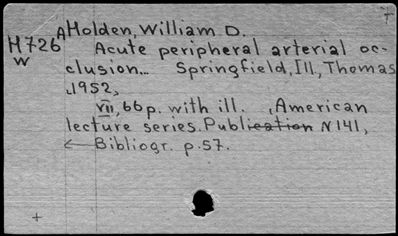 AHolden, William D.
H726 Acute peripheral arterial oc-
w clusion... Springfield, Ill., Thomas
1952,
VII, 66p. with ill. , American
lecture series. Publication N141,
Bibliogr. p.57.